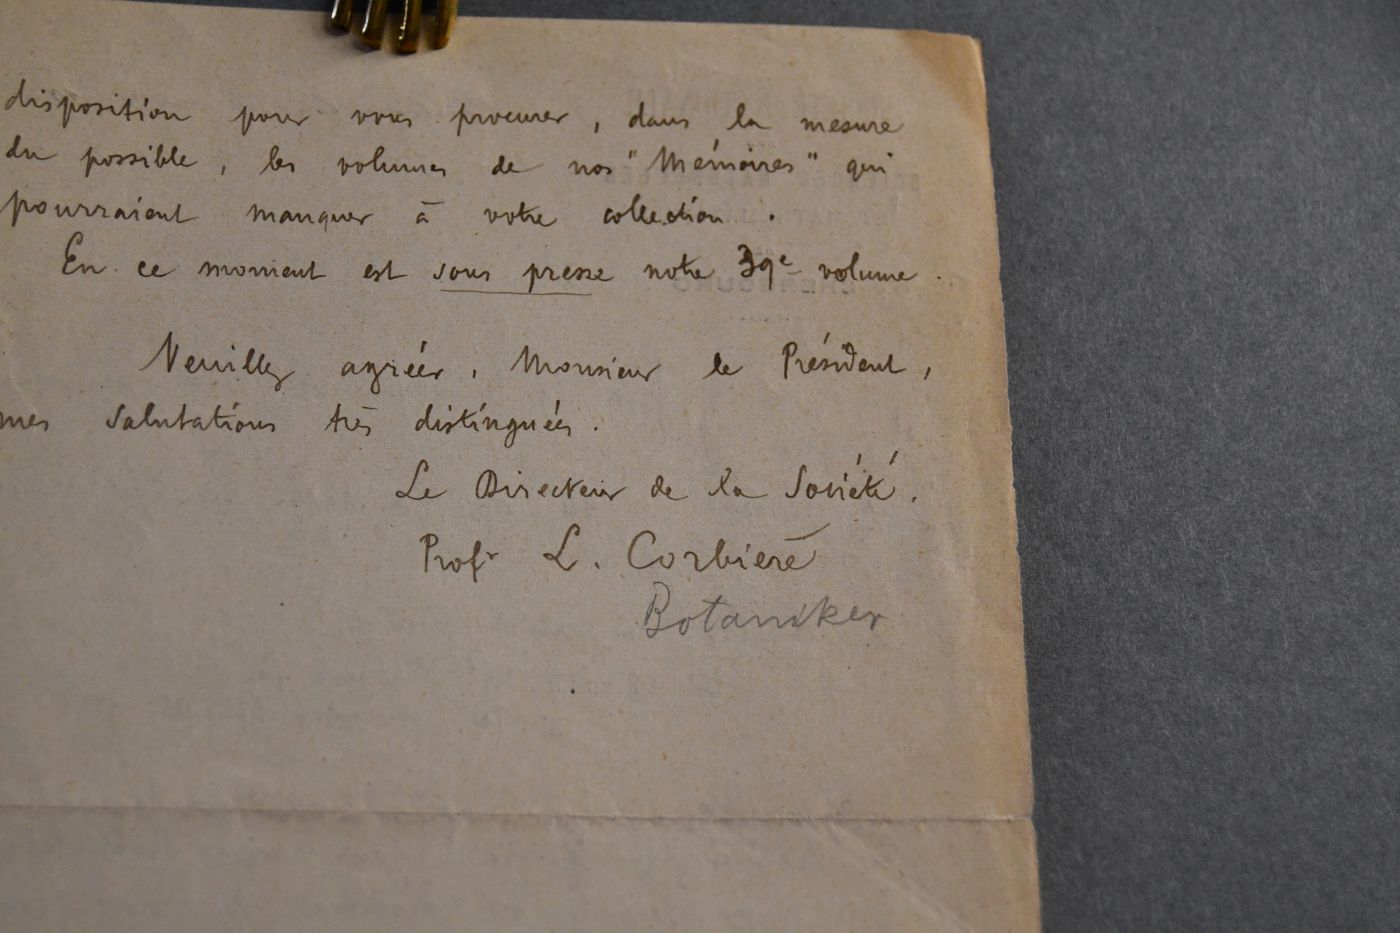 disposition pour vous procurer, dans la mesure
du possible, les volumes de nos "Mémoires" qui
pourraient manquer à votre collection.
En ce moment est sous presse notre 39e volume.
Veuillez agréer, Monsieur le Président,
mes salutations très distinguées.
Le Directeur de la Société.
Profr L. Corbière
Botaniker